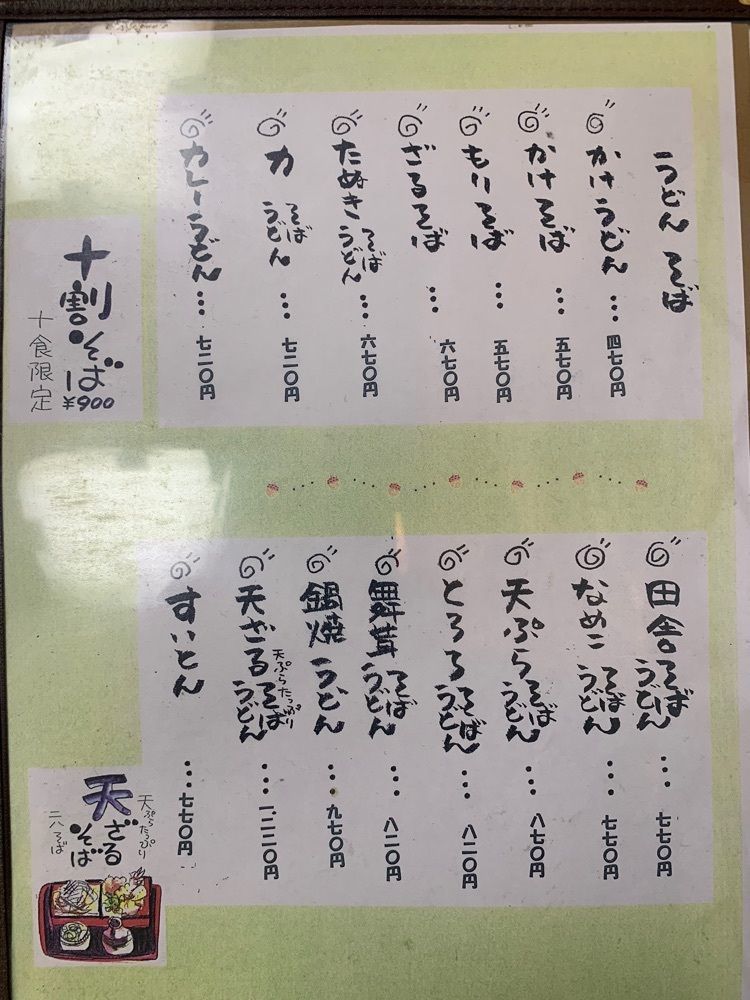 うどん そば
かけうどん … 四七〇円
かけそば … 五七〇円
もりそば … 五七〇円
ざるそば … 六七〇円
たぬき そば うどん … 六七〇円
力 そば うどん … 七二〇円
カレーうどん … 七二〇円
十割そば
¥900
十食限定
田舎 そば うどん … 七七〇円
なめこ そば うどん … 七七〇円
天ぷら そば うどん … 八七〇円
とろろ そば うどん … 八二〇円
舞茸 そば うどん … 八二〇円
鍋焼うどん … 九七〇円
天ざる そば うどん 天ぷらたっぷり … 一.二二〇円
すいとん … 七七〇円
天ざるそば
天ぷらたっぷり
二八そば